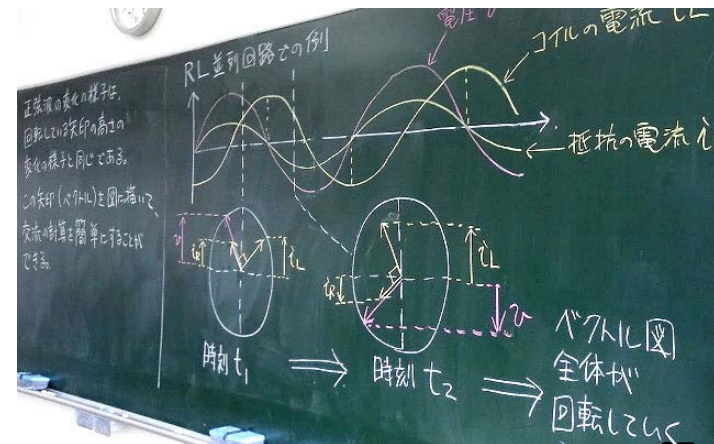 正弦波の変化の様子は、
回転している矢印の高さの
変化の様子と同じである。
この矢印(ベクトル)を図に描いて、
交流の計算を簡単にすることが
できる。
RL並列回路での例
電圧 v
コイルの電流 iL
抵抗の電流 i
v
iR
iL
時刻 t1
⇒
iR
iL
v
時刻 t2
⇒
ベクトル図
全体が
回転していく